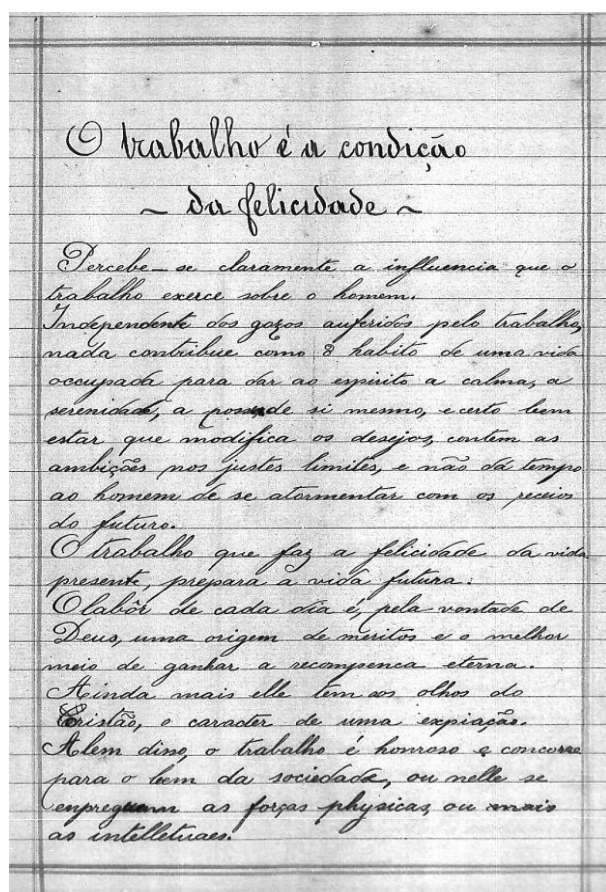 O trabalho é a condição
~ da felicidade ~
Percebe-se claramente a influencia que o
trabalho exerce sobre o homem.
Independente dos gozos auferidos pelo trabalho,
nada contribue como o habito de uma vida
occupada para dar ao espirito a calma, a
serenidade, a posse de si mesmo, e certo bem
estar que modifica os desejos, contem as
ambições nos justes limites, e não dá tempo
ao homem de se atormentar com os receios
do futuro.
O trabalho que faz a felicidade da vida
presente, prepara a vida futura:
O labôr de cada dia é, pela vontade de
Deus, uma origem de meritos e o melhor
meio de ganhar a recompenca eterna.
Ainda mais elle tem aos olhos do
Cristão, o caracter de uma expiação.
Alem disso, o trabalho é honroso e concorre
para o bem da sociedade, ou nelle se
empreguem as forças physicas, ou mais
as intelletuaes.